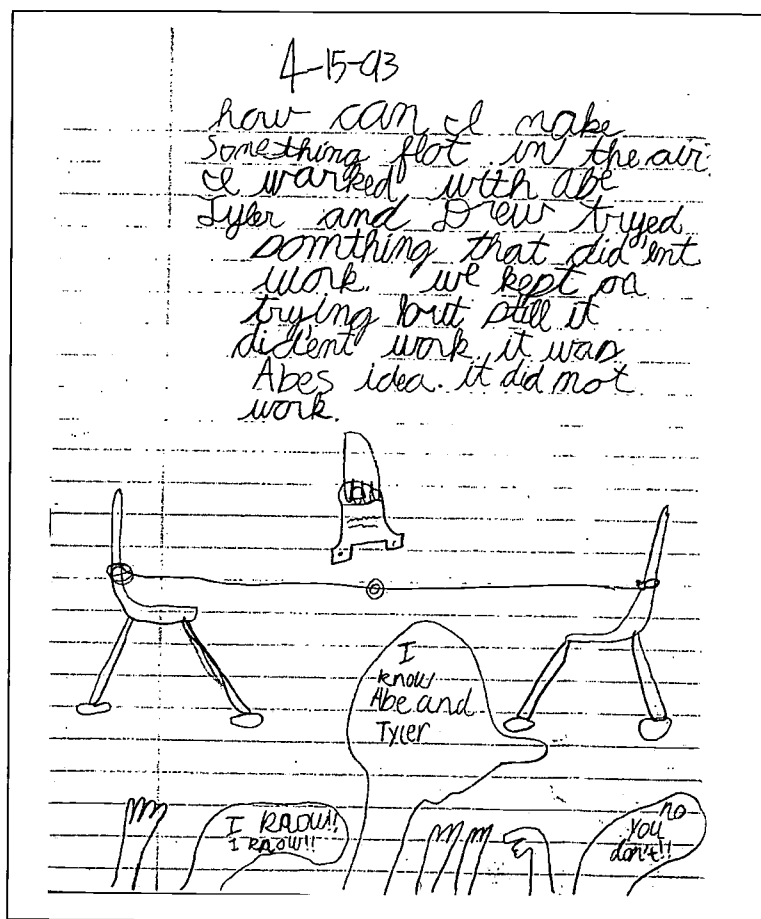 4-15-93
how can I make
something flot in the air
I warked with Abe
Tyler and Drew tryed
somthing that did'ent
work. we kept on
trying but still it
did'ent work. it was
Abes idea. it did not
work.
I
know
Abe and
Tyler
I know!!
I know!!
no
you
don't!!